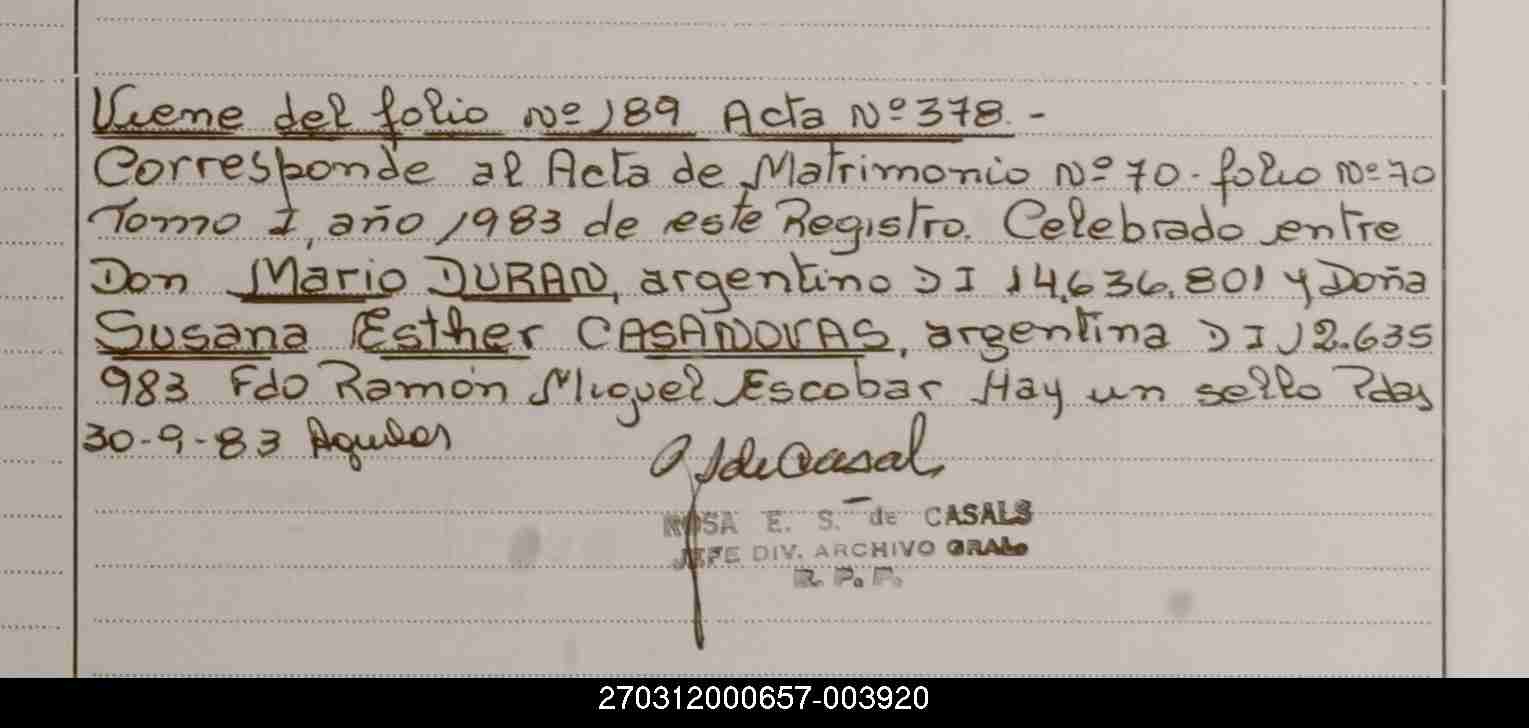 Viene del folio Nº 189 Acta Nº 378. -
Corresponde al Acta de Matrimonio Nº 70. folio Nº 70
Tomo I, año 1983 de este Registro. Celebrado entre
Don Mario DURAN, argentino DI 14.636.801 y Doña
Susana Esther CASANOVAS, argentina DI 12.635
983 Fdo Ramón Miguel Escobar Hay un sello Pdas
30-9-83
de Casals
ROSA E. S. de CASALS
JEFE DIV. ARCHIVO GRAL.
R. P. P.
270312000657-003920